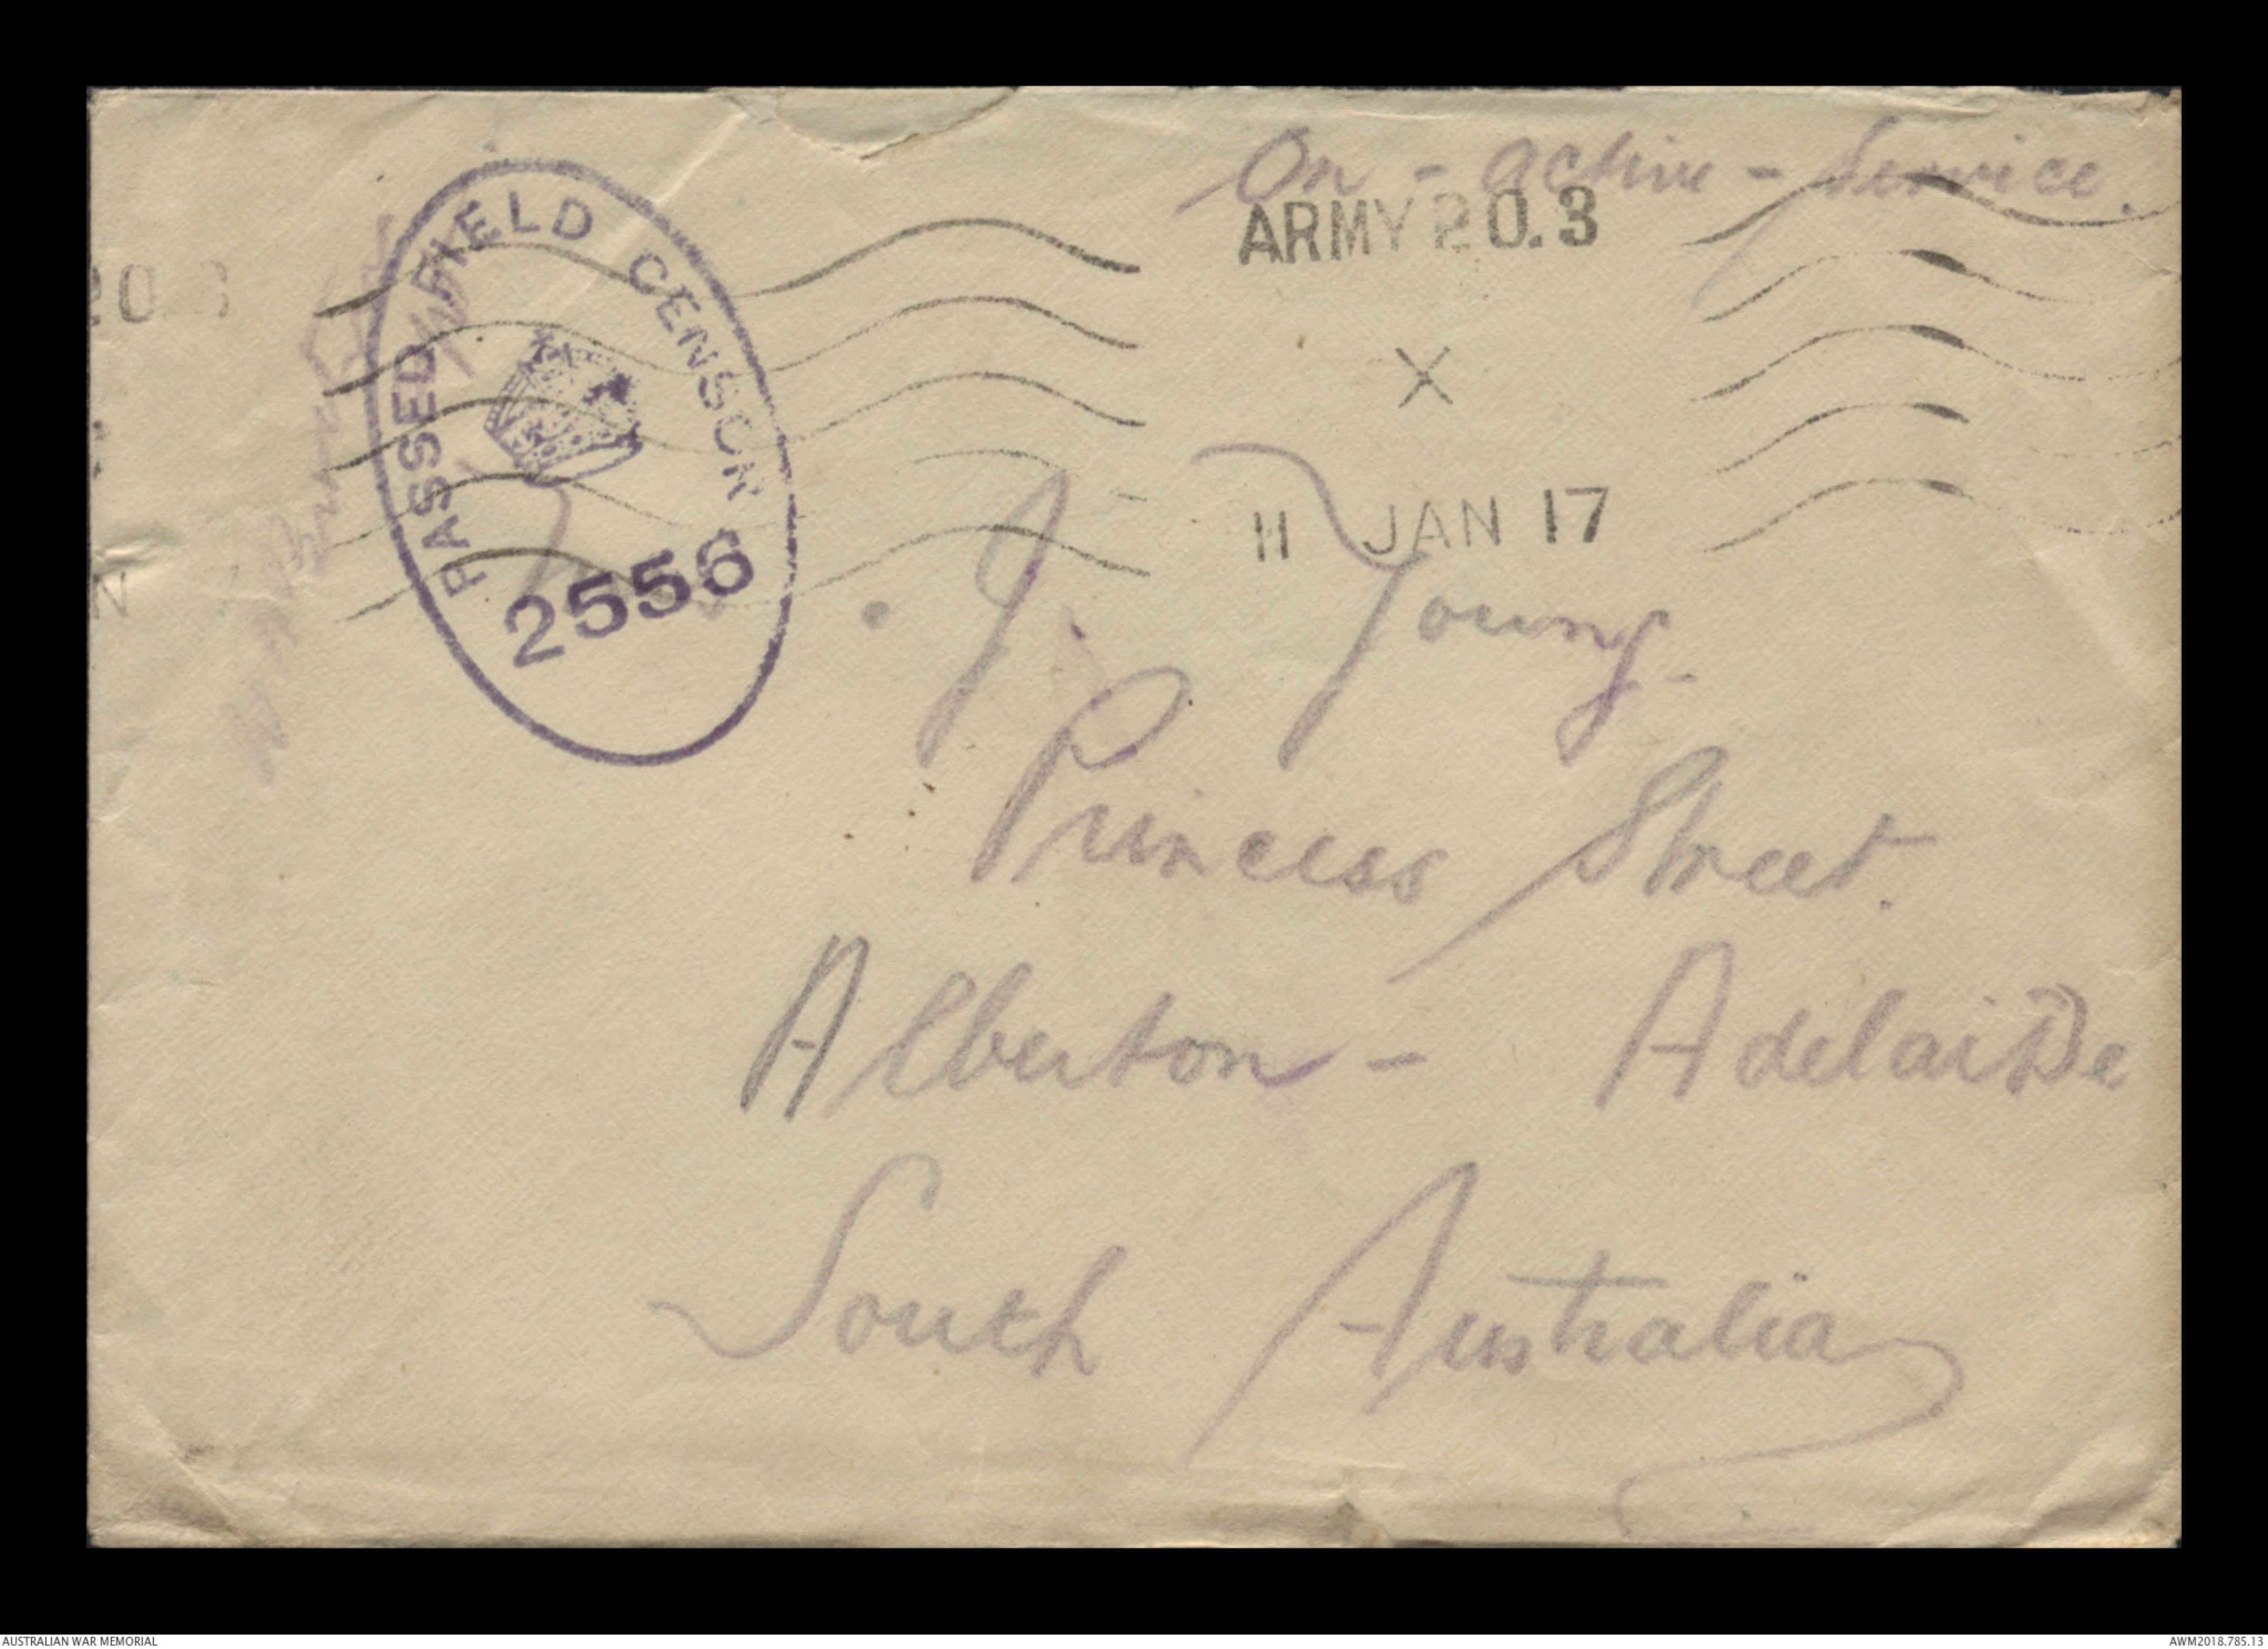 On - active - Service.
ARMY P.O. 3
X
11 JAN 17
PASSED FIELD CENSOR
2556
J. Young-
Princess Street.
Alberton - Adelaide
South Australia
AUSTRALIAN WAR MEMORIAL
AWM2018.785.13